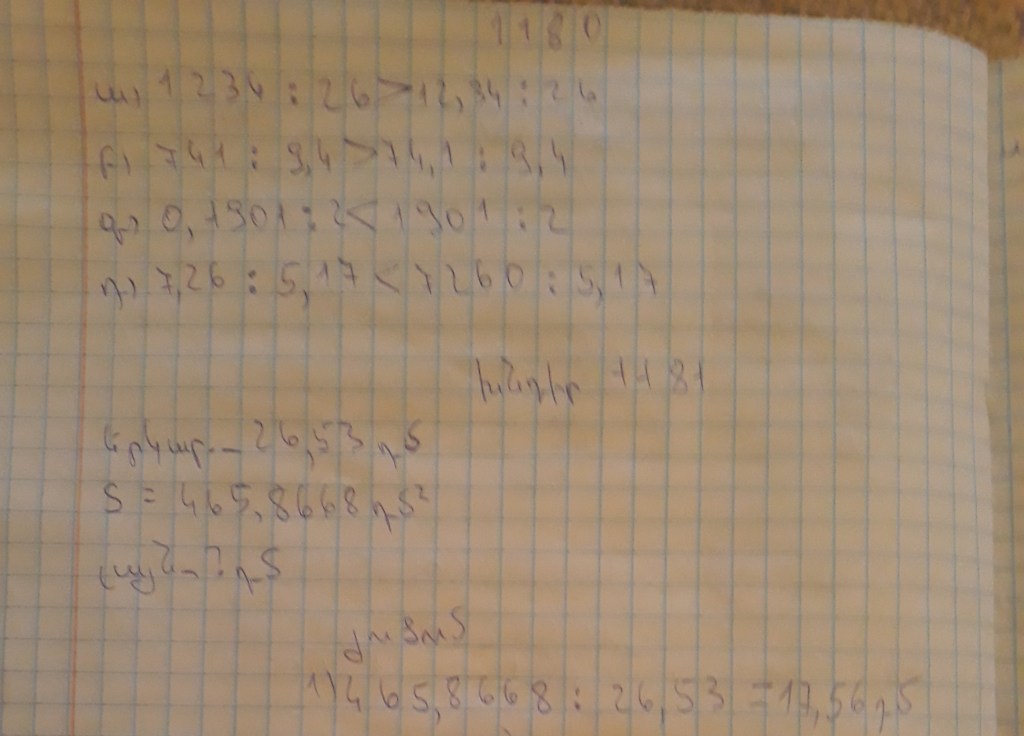 1180
ա) 1234 : 26 > 12,34 : 26
բ) 741 : 9,4 > 74,1 : 9,4
գ) 0,1901 : 2 < 1901 : 2
դ) 7,26 : 5,17 < 7260 : 5,17
խնդիր 1181
երկար.– 26,53 դմ
S = 465,8668 դմ²
լայն– ? դմ
լուծում
1) 465,8668 : 26,53 = 17,56 դմ